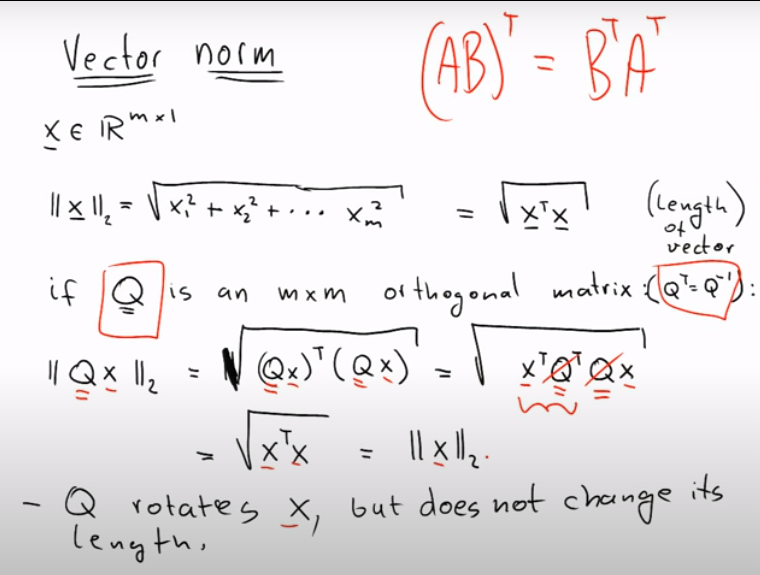 Vector norm
(AB)ᵀ = BᵀAᵀ
x ∈ ℝᵐˣ¹
||x||₂ = √(x₁² + x₂² + ... xₘ²) = √(xᵀx) (length of vector)
if Q is an m×m orthogonal matrix :(Qᵀ=Q⁻¹):
||Qx||₂ = √((Qx)ᵀ(Qx)) = √(xᵀQᵀQx)
= √(xᵀx) = ||x||₂.
- Q rotates x, but does not change its
length.